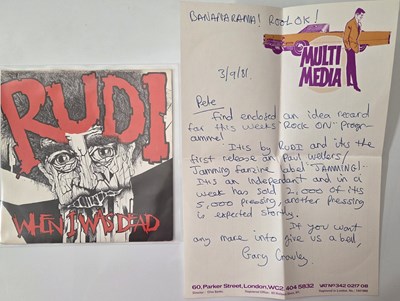 RUDI
WHEN I WAS DEAD
BANANARAMA! ROOL OK!
MULTI
MEDIA
3/9/81.
Pete
Find enclosed an idea record
for this weeks "Rock ON" Progr-
amme!
Its by RUDI and its the
first release on Paul Wellers/
Jamming fanzine label 'JAMMING!'
Its an independant and in a
week has sold 2,000 of its
5,000 pressing, another pressing
is expected shortly.
If you want
any more info give us a bell,
Gary Crowley
60, Parker Street, London, WC2. 404 5832
VAT No 342 0217 08